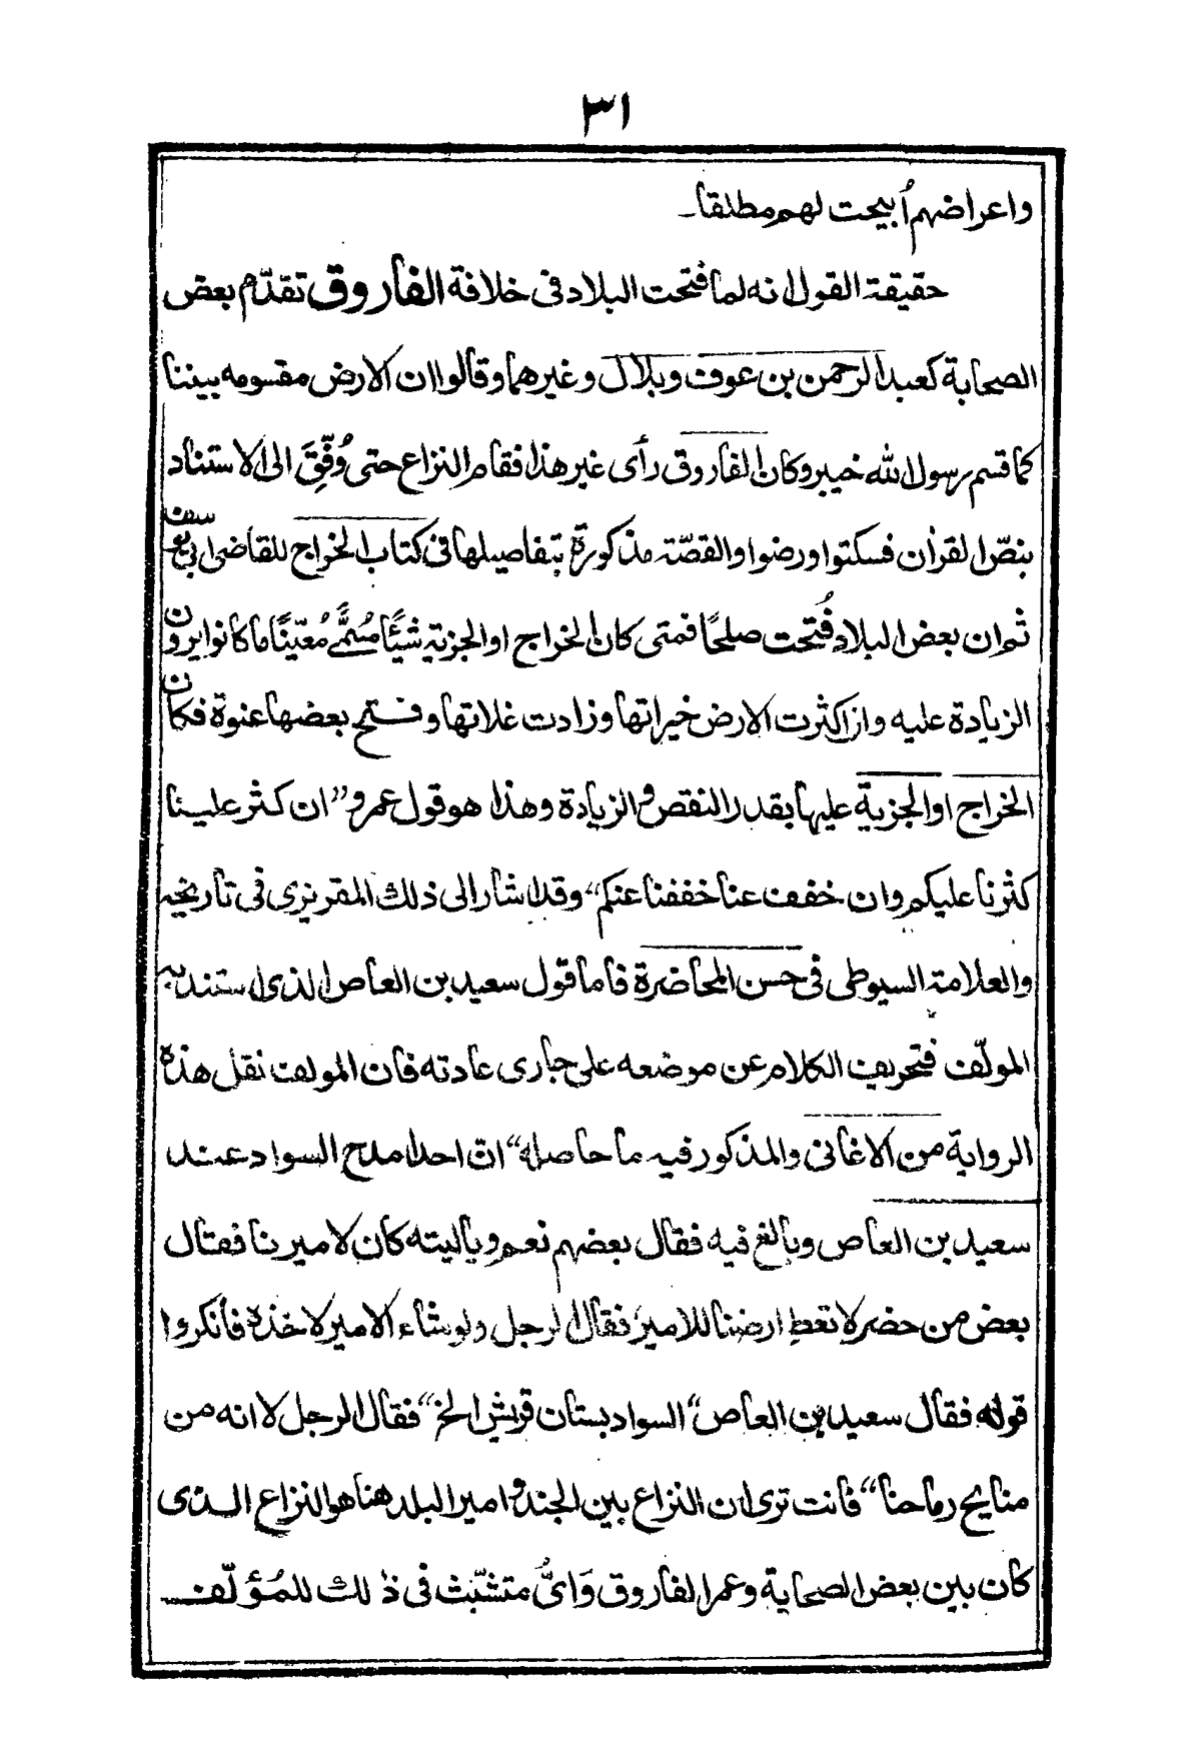 ٣١
واعراضهم أُبيحت لهم مطلقا۔
حقيقة القول انه لما فُتحت البلاد فى خلافة الفاروق تقدّم بعض
الصحابة كعبد الرحمن بن عوف وبلال وغيرهما وقالوا ان الارض مقسومه بيننا
كما قسم رسول الله خيبر وكان الفاروق رأى غير هذا فقام النزاع حتى وُفِّقَ الى الاستناد
بنصّ القرأن فسكتوا ورضوا والقصّة مذكورة بتفاصيلها فى كتاب الخراج للقاضى ابى يوسف
ثم ان بعض البلاد فُتحت صلحًا فمتى كان الخراج او الجزية شيئًا مُسمًّى مُعيّنًا ما كانوا يرون
الزيادة عليه وان اكثرت الارض خيراتها وزادت غلاتها وفتح بعضها عنوة فكان
الخراج او الجزية عليها بقدر النقص والزيادة وهذا هو قول عمرو ”ان كثر علينا
كثرنا عليكم وان خفف عنا خففنا عنكم“ وقد اشار الى ذلك المقريزى فى تاريخيه
والعلامة السيوطى فى حسن المحاضرة فاما قول سعيد بن العاص الذى استند به
المولّف فتحريف الكلام عن موضعه على جارى عادته فان المولف نقل هذه
الرواية من الاغانى والمذكور فيه ما حاصله “ان احدا مدح السواد عند
سعيد بن العاص وبالغ فيه فقال بعضهم نعم وياليته كان لاميرنا فقال
بعض من حضر لا تعطِ ارضنا للامير فقال الرجل ولو شاء الامير لاخذه فأنكروا
قوله فقال سعيد بن العاص “السواد بستان قريش الخ“ فقال الرجل لا انه من
منايح رماحنا“ فانت ترى ان النزاع بين الجند وامير البلد هنا هو النزاع الذى
كان بين بعض الصحابة وعمر الفاروق وَاىُّ متشبّث فى ذلك للمُؤلّف